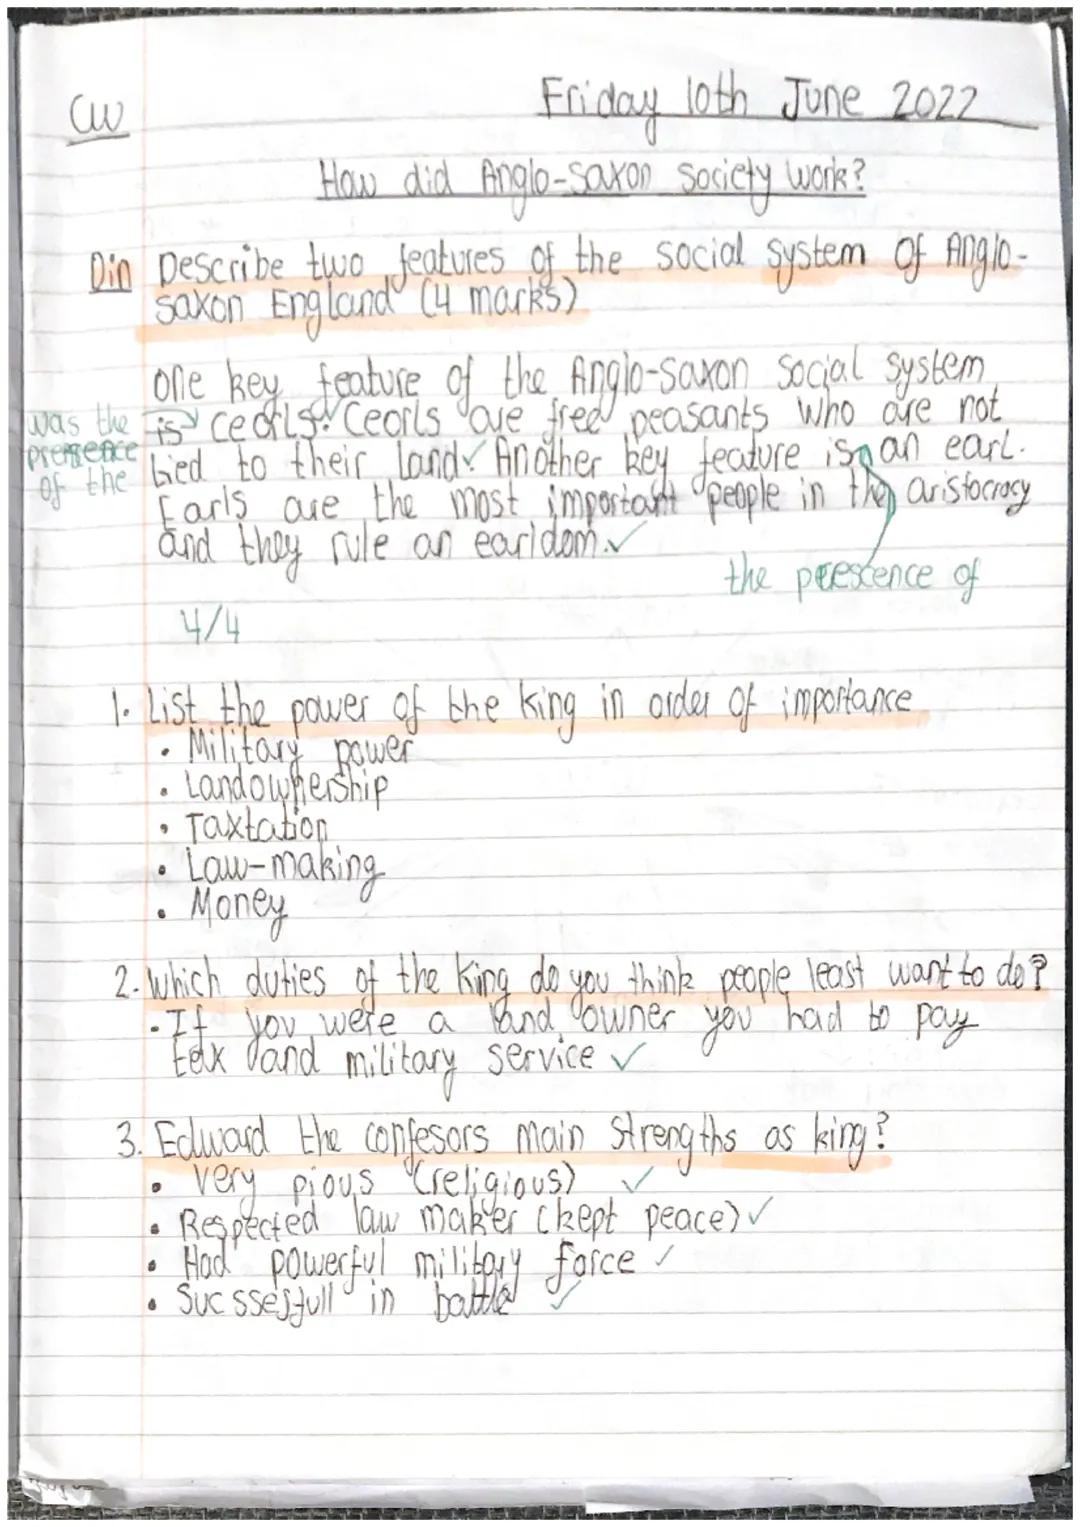 CW
Friday 10th June 2022
How did Anglo-Saxon society work?
Din Describe two features of the social system of Anglo-
saxon England (4 marks)
One key feature of the Anglo-Saxon Social system
was the is ceorls. Ceorls are free peasants who are not
presence tied to their land. Another key feature is an earl.
of the Earls are the most important people in the aristocracy
and they rule an earldom.
the prescence of
4/4
1. List the power of the king in order of importance
• Military power
• Landownership
• Taxtation
• Law-making
• Money
2. Which duties of the King do you think people least want to do?
- If you were a land owner you had to pay
tax and military service
3. Edward the confesors main strengths as king?
• Very pious (religious)
• Respected law maker (kept peace)
• Had powerful military force
• Sucssesfull in battle